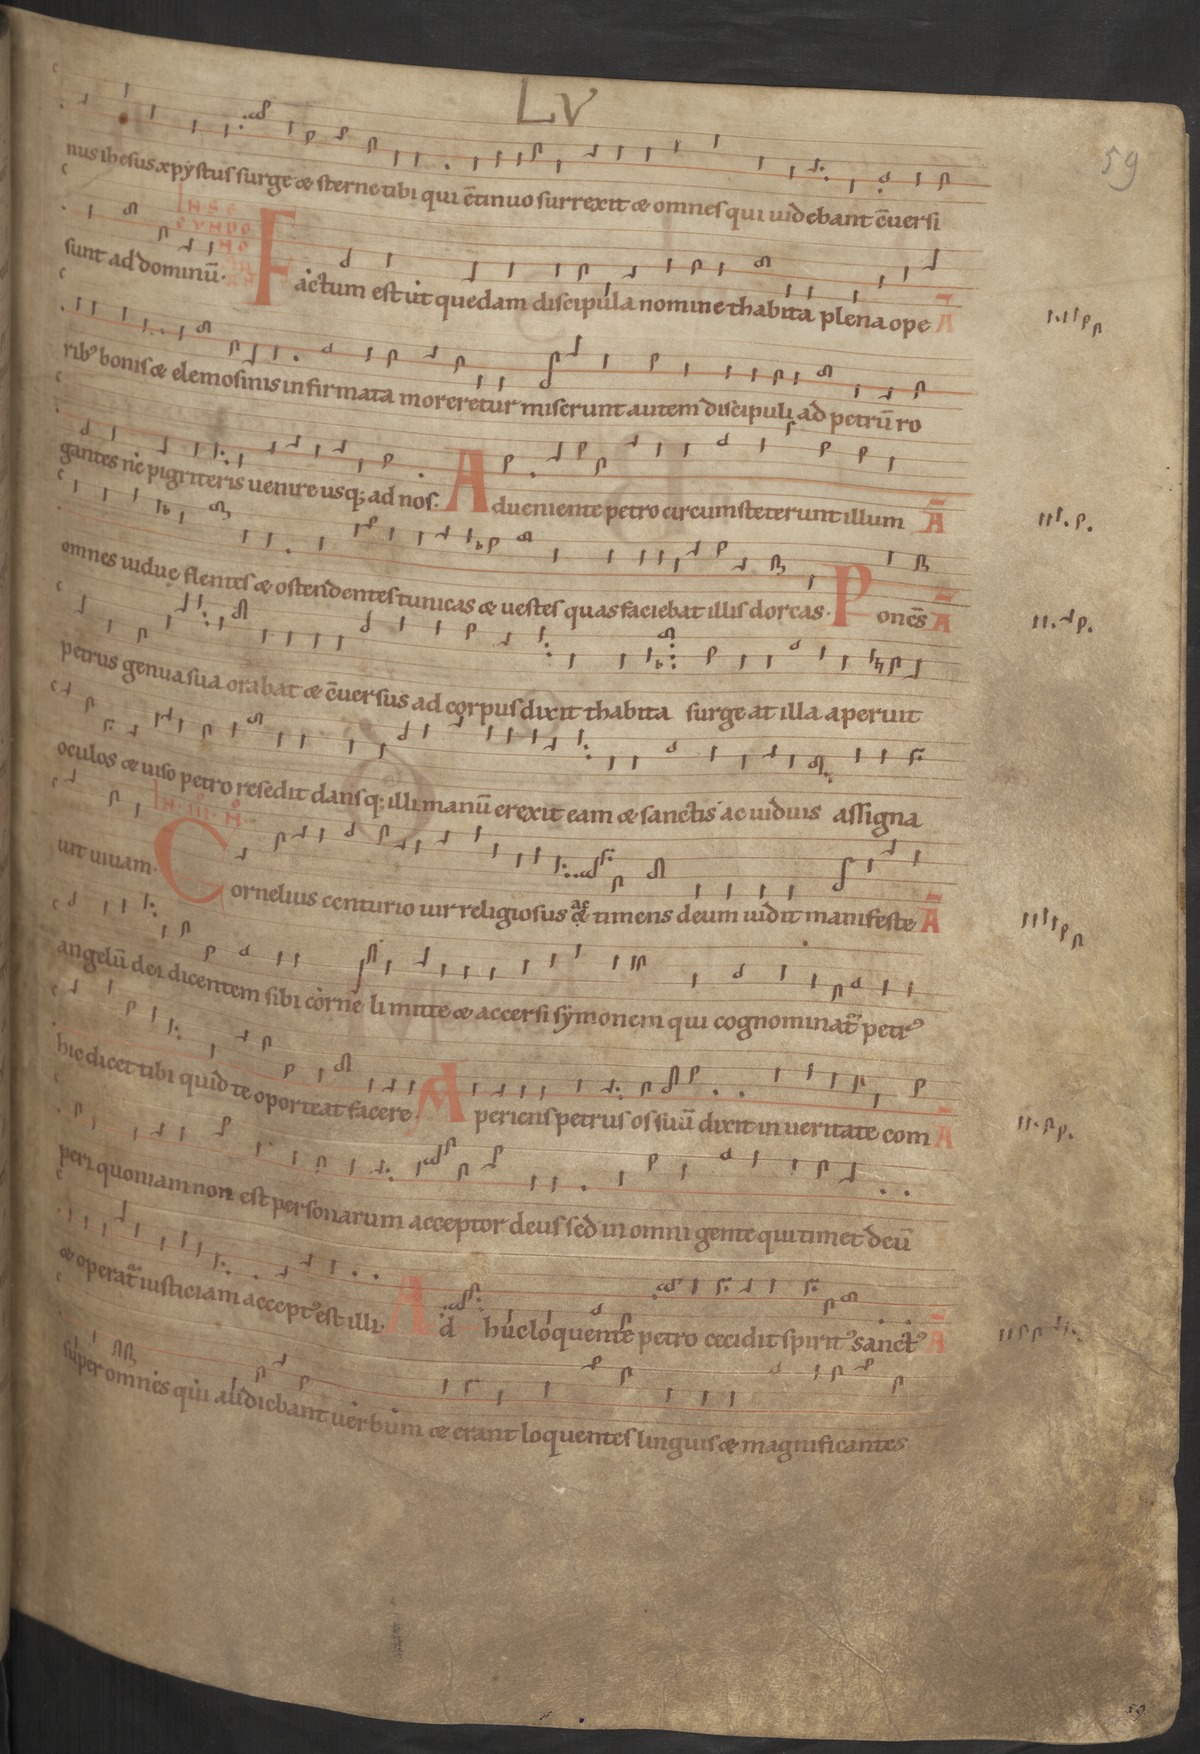 LV
59
nus ihesus xpystus surge & sterne tibi qui c̄tinuo surrexit & omnes qui uidebant c̄uersi
IN SE
CVNDO
NO
sunt ad dominū. Factum est ut quedam discipula nomine thabita plena ope Ā
rib⁹ bonis & elemosinis infirmata moreretur miserunt autem discipuli ad petrū ro
gantes ne pigriteris uenire usq; ad nos. Adueniente petro circumsteterunt illum Ā
omnes uidue flentes & ostendentes tunicas & uestes quas faciebat illis dorcas. Ponēs Ā
petrus genua sua orabat & c̄uersus ad corpus dixit thabita surge at illa aperuit
oculos & uiso petro resedit dansq; illi manū erexit eam & sanctis ac uiduis assigna
IN III N
uit uiuam. Cornelius centurio uir religiosus ac timens deum uidit manifeste Ā
angelū dei dicentem sibi corne li mitte & accersi symonem qui cognominat̄ petr⁹
hic dicet tibi quid te oporteat facere Aperiens petrus os suū dixit in ueritate com Ā
peri quoniam non est personarum acceptor deus sed in omni gente qui timet deū
& operat̄ iusticiam accept⁹ est illi. Ad huc loquente petro cecidit spirit⁹ sanct⁹ Ā
super omnes qui audiebant uerbum & erant loquentes linguis & magnificantes
59